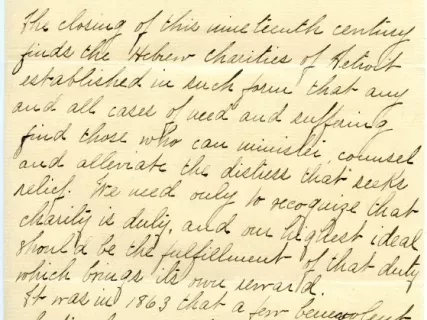 The closing of this nineteenth century
finds the Hebrew charities of Detroit
established in such form that any
and all cases of need and suffering
find those who can minister, counsel
and alleviate the distress that seeks
relief. We need only to recognize that
charity is duty, and our highest ideal
should be the fulfillment of that duty
which brings its own reward.
It was in 1863 that a few benevolent